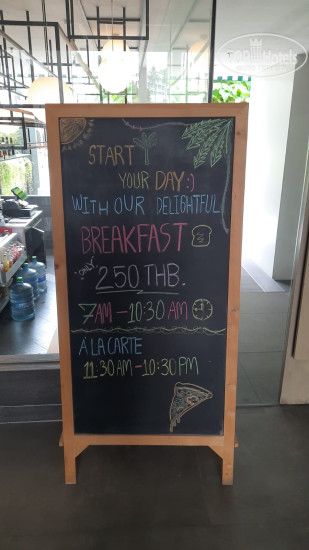 START
YOUR DAY:)
WITH OUR DELIGHTFUL
BREAKFAST
ONLY
250 THB.
7AM-10:30 AM
A LA CARTE
11:30AM-10:30PM